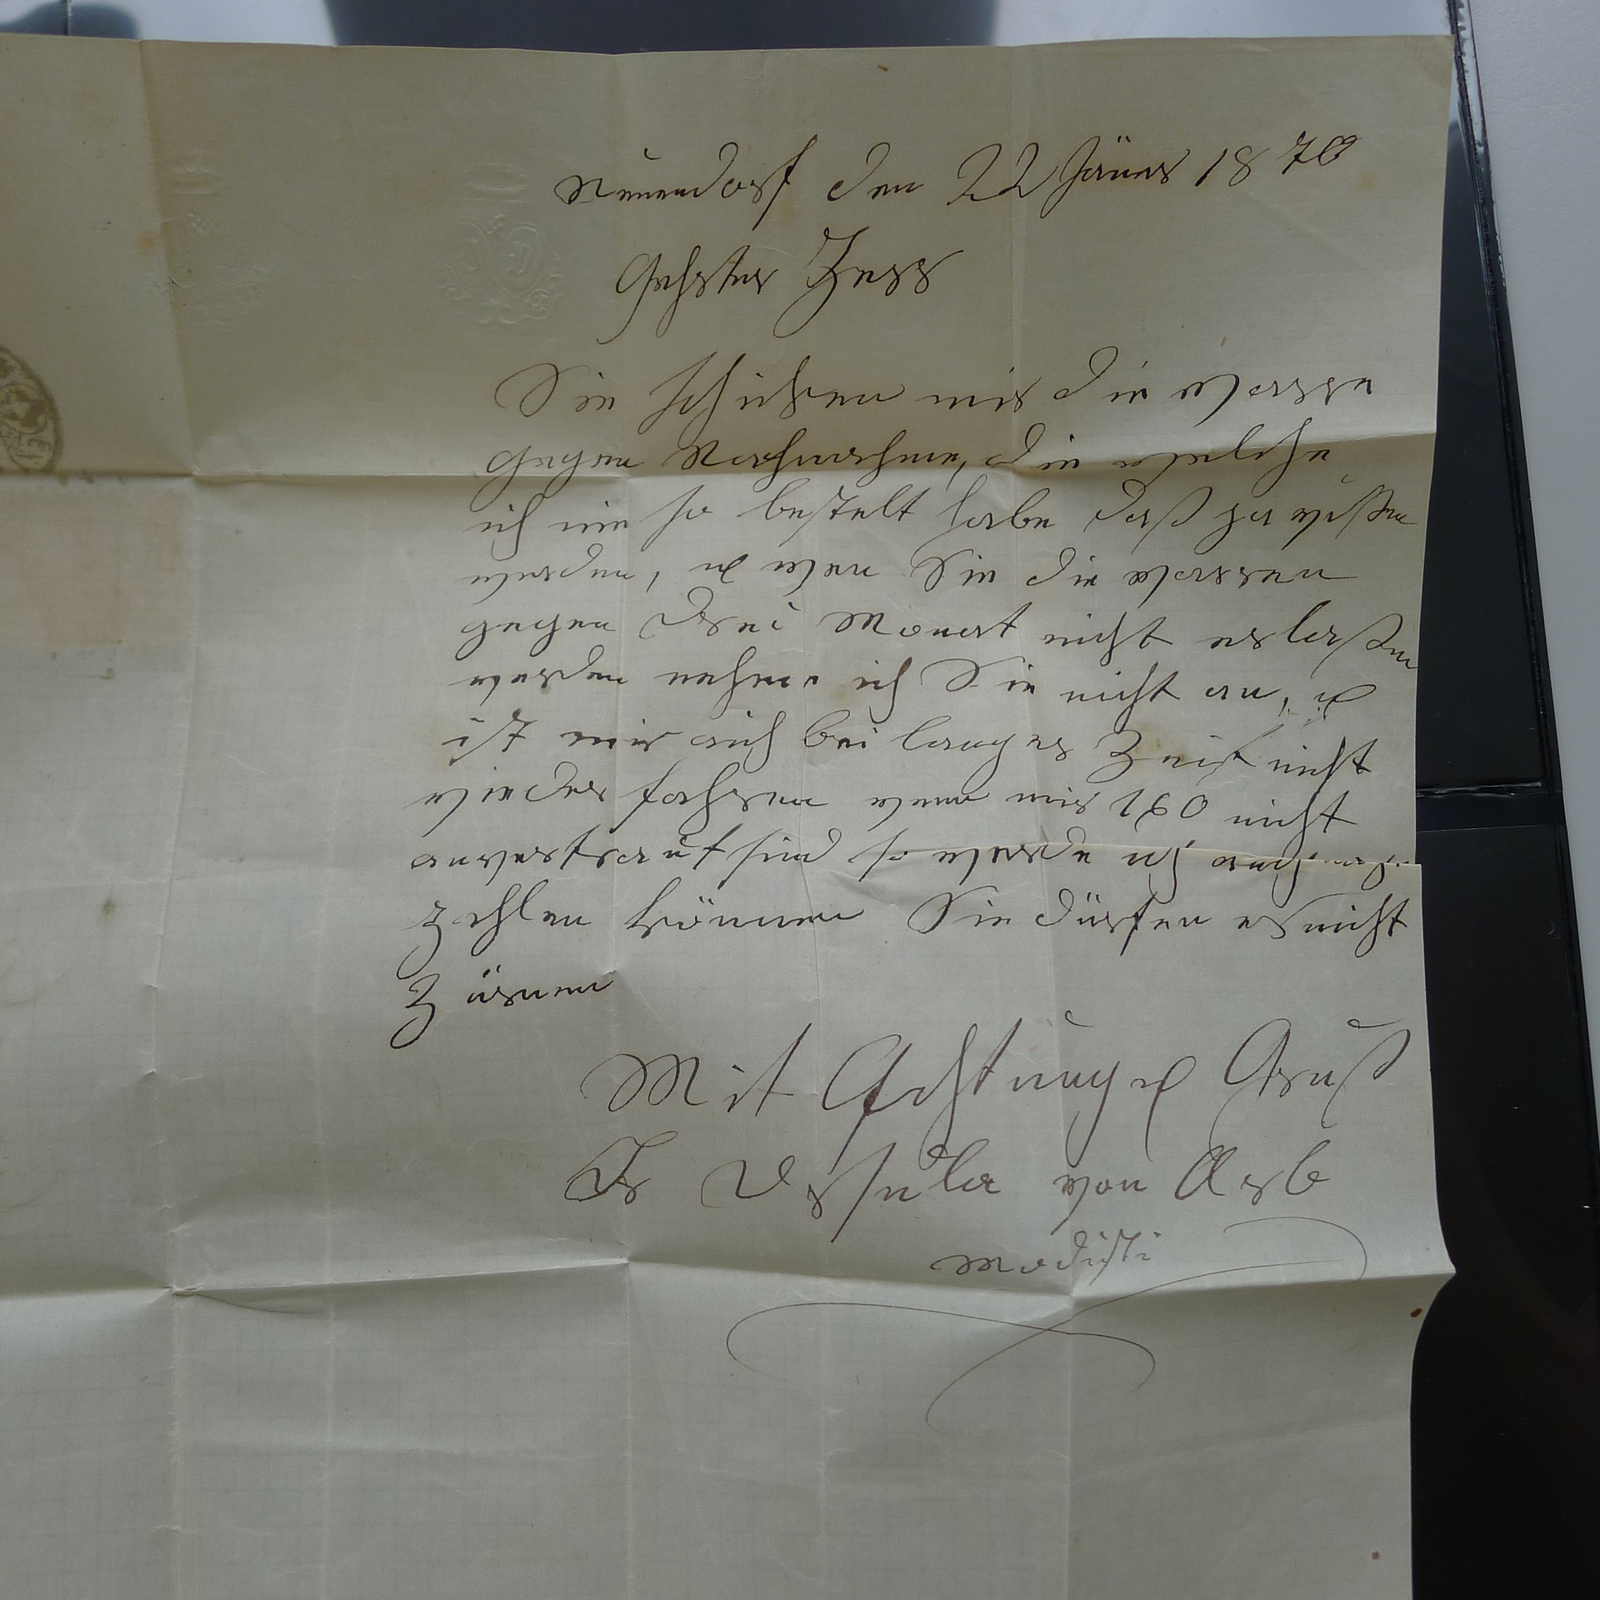 Neuendorf den 22 Jäner 1870
Gehrter Herr
Sie schicken mir die Warre
gegen Nachnahme, die welche
ich nie so bestelt habe daß gewissen
werden, u wen Sie die Warren
gegen drei Monat nicht erlaßen
werden nehme ich Sie nicht an, u
ist mir auch bei langer Zeit nicht
wieder fahren wenn mir nicht
anvertraut sind so werde ich auch
zahlen können Sie dürfen es nicht
Zürnen
Mit Achtung u Gruß
Fr Ursula von Arb
Modisti